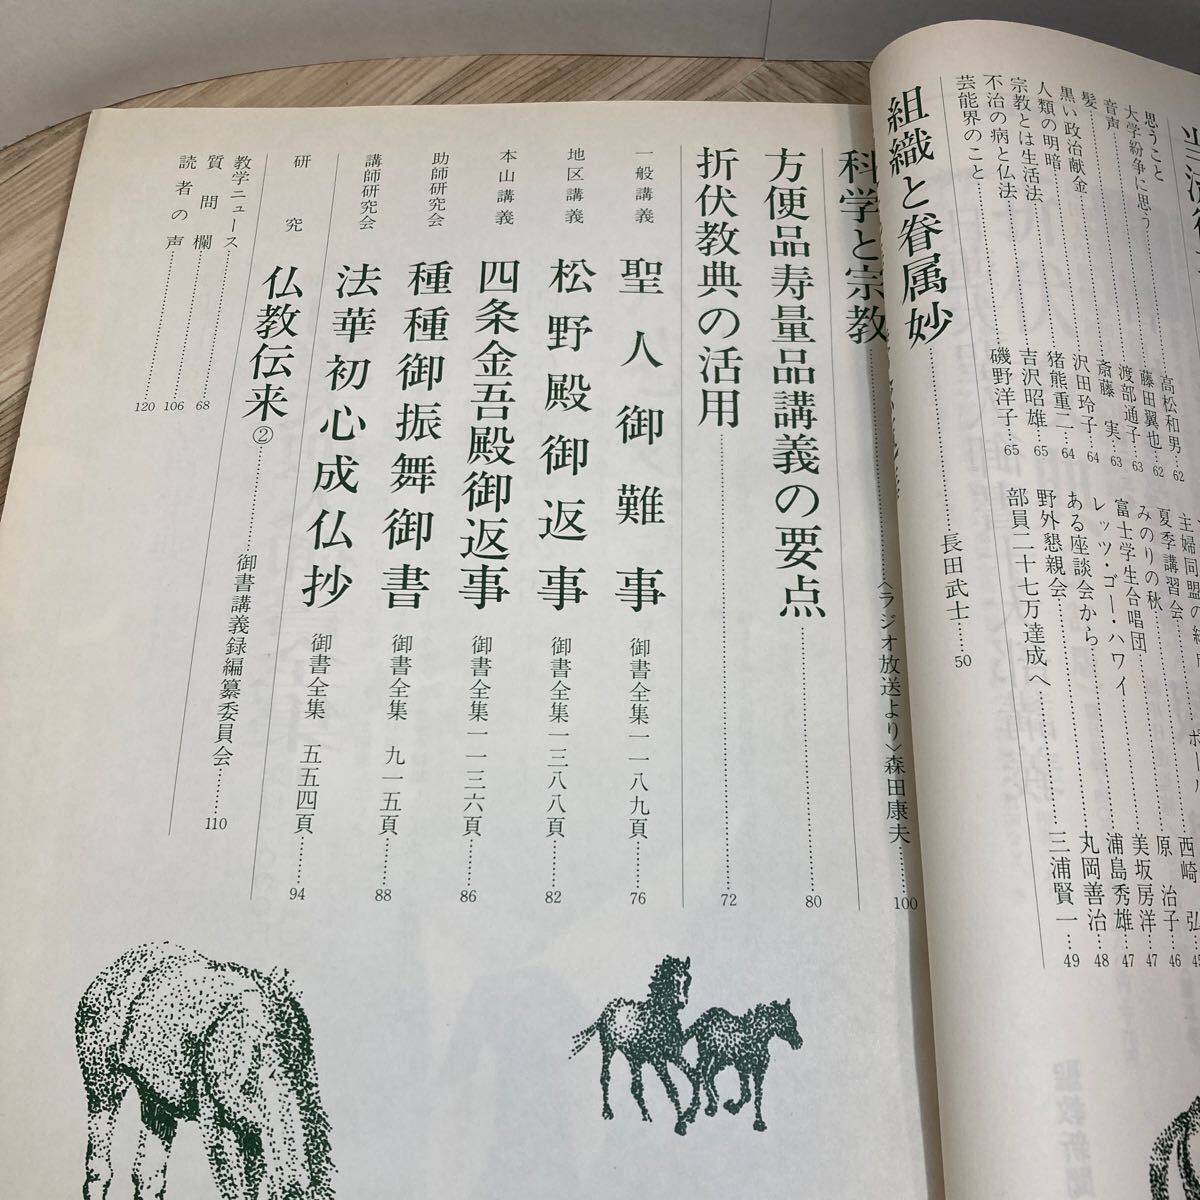 組織と眷属妙……長田武士……50
思うこと……高松和男……62
大学紛争に思う……藤田翼也……62
音声……渡部通子……63
髪……斎藤　実……63
黒い政治献金……沢田玲子……64
人類の明暗……猪能重二……64
宗教とは生活法……吉沢昭雄……65
不治の病と仏法……磯野洋子……65
芸能界のこと
夏季講習会……原　治子……46
みのりの秋……美坂房洋……47
富士学生合唱団……浦島秀雄……47
レッツ・ゴー・ハワイ……丸岡善治……48
ある座談会から……三浦賢一……49
野外懇親会
部員二十七万達成へ
科学と宗教……〈ラジオ放送より〉森田康夫……100
方便品寿量品講義の要点……80
折伏教典の活用……72
一般講義　聖人御難事　御書全集一一八九頁……76
地区講義　松野殿御返事　御書全集一三八八頁……82
本山講義　四条金吾殿御返事　御書全集一一三六頁……86
助師研究会　種種御振舞御書　御書全集　九一五頁……88
講師研究会　法華初心成仏抄　御書全集　五五四頁……94
研究　仏教伝来②……御書講義録編纂委員会……110
教学ニュース……68
質問欄……106
読者の声……120